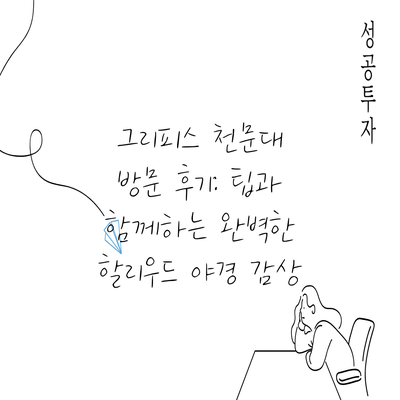 성공투자
그리피스 천문대
방문 후기: 팁과
함께하는 완벽한
할리우드 야경 감상